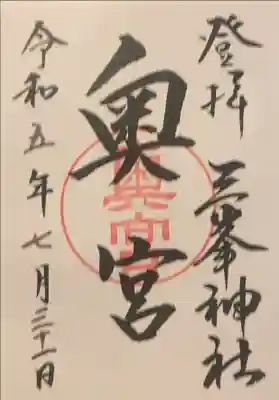 登拝 三峯神社
奥宮
令和五年七月三十一日